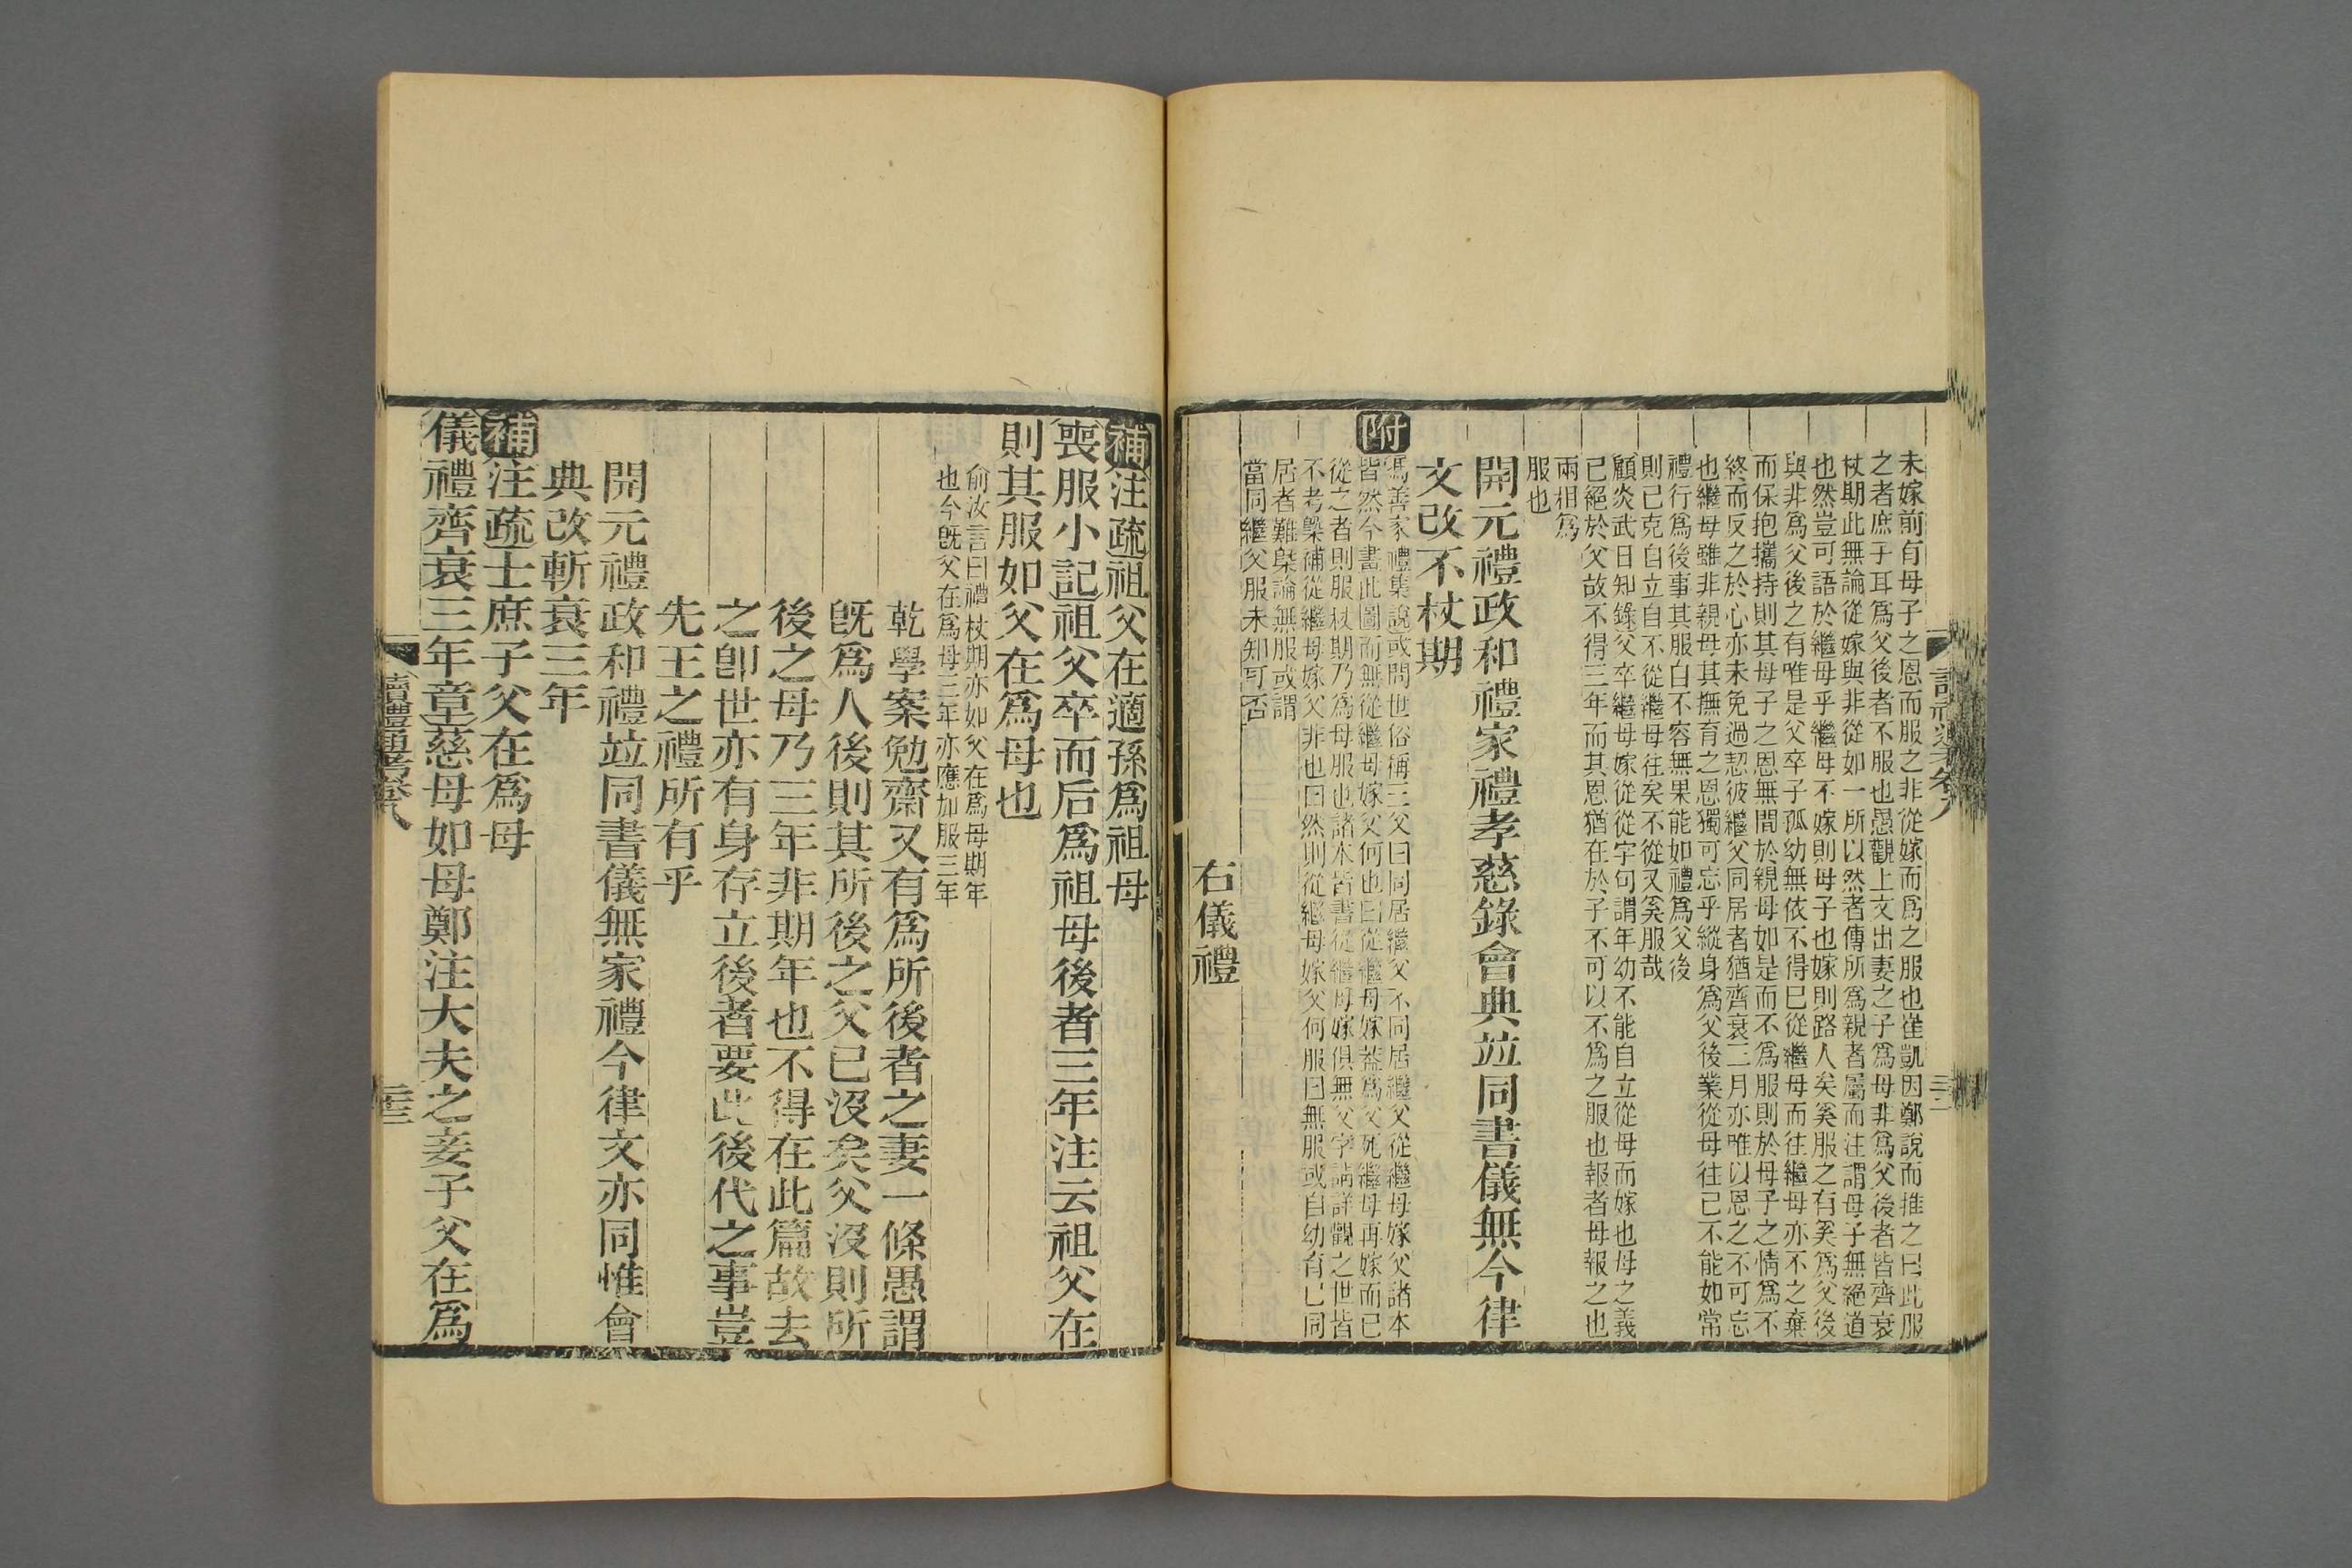 未嫁前有母子之恩而服之非從嫁而爲之服也崔凱因鄭說而推之曰此服
之者庶子耳爲父後者不服也愚觀上文出妻之子爲母非爲父後者皆齊衰
杖期此無論從嫁與非從如一所以然者傳所爲親者屬而注謂母子無絕道
也然豈可語於繼母乎繼母不嫁則母子也嫁則路人矣奚服之有奚爲父後
與非爲父後之有唯是父卒子孤幼無依不得已從繼母而往繼母亦不之棄
而保抱攜持則其母子之恩無間於親母如是而不爲服則於母子之情爲不
終而反之於心亦未免過恝彼繼父同居者猶齊衰三月亦唯以恩之不可忘
也繼母雖非親母其撫育之恩獨可忘乎縱身爲父後業從母往已不能如常
禮行爲後事其服自不容無果能如禮爲父後
則已克自立自不從繼母往矣不從又奚服哉
顧炎武日知錄父卒繼母嫁從從字句謂年幼不能自立從母而嫁也母之義
已絕於父故不得三年而其恩猶在於子不可以不爲之服也報者母報之也
兩相爲
服也
開元禮政和禮家禮孝慈錄會典竝同書儀無今律
文改不杖期
附
馮善家禮集說或問世俗稱三父曰同居繼父不同居繼父從繼母嫁父諸本
皆然今書此圖而無從繼母嫁父何也曰從繼母嫁蓋爲父死繼母再嫁而已
從之者則服杖期乃爲母服也諸本皆書從繼母嫁俱無父字請詳觀之世皆
不考槩補從繼母嫁父非也曰然則從繼母嫁父何服曰無服或自幼育已同
居者難槩論無服或謂
當同繼父服未知可否
右儀禮
讀禮通考卷八
補注疏祖父在適孫爲祖母
喪服小記祖父卒而后爲祖母後者三年注云祖父在
則其服如父在爲母也
俞汝言曰禮杖期亦如父在爲母期年
也今旣父在爲母三年亦應加服三年
乾學案勉齋又有爲所後者之妻一條愚謂
旣爲人後則其所後之父已沒矣父沒則所
後之母乃三年非期年也不得在此篇故去
之卽世亦有身存立後者要此後代之事豈
先王之禮所有乎
開元禮政和禮竝同書儀無家禮今律文亦同惟會
典改斬衰三年
補注疏士庶子父在爲母
儀禮齊衰三年章慈母如母鄭注大夫之妾子父在爲
讀禮通考卷八
二十三